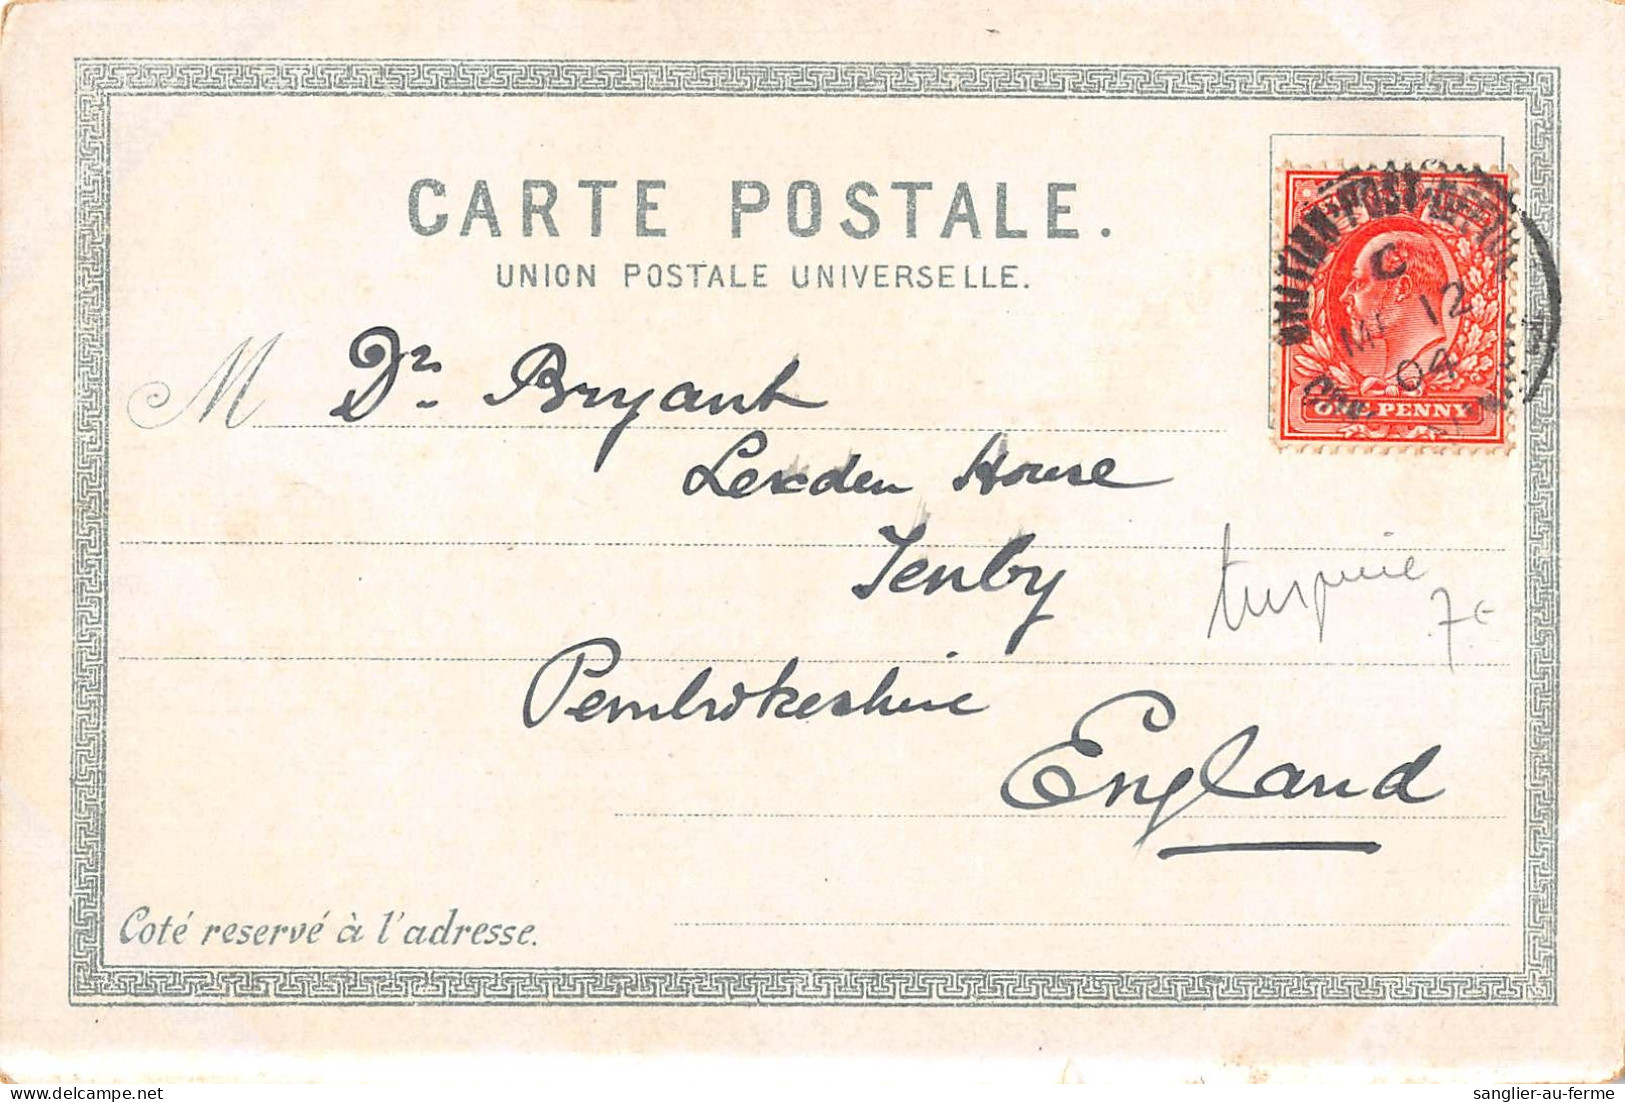 CARTE POSTALE.
UNION POSTALE UNIVERSELLE.
BRITISH POST OFFICE
C
12
04
ONE PENNY
M Dr. Bryant
Lexden House
Tenby
Pembrokeshire
England
7€
Coté reservé à l'adresse.
sanglier-au-ferme